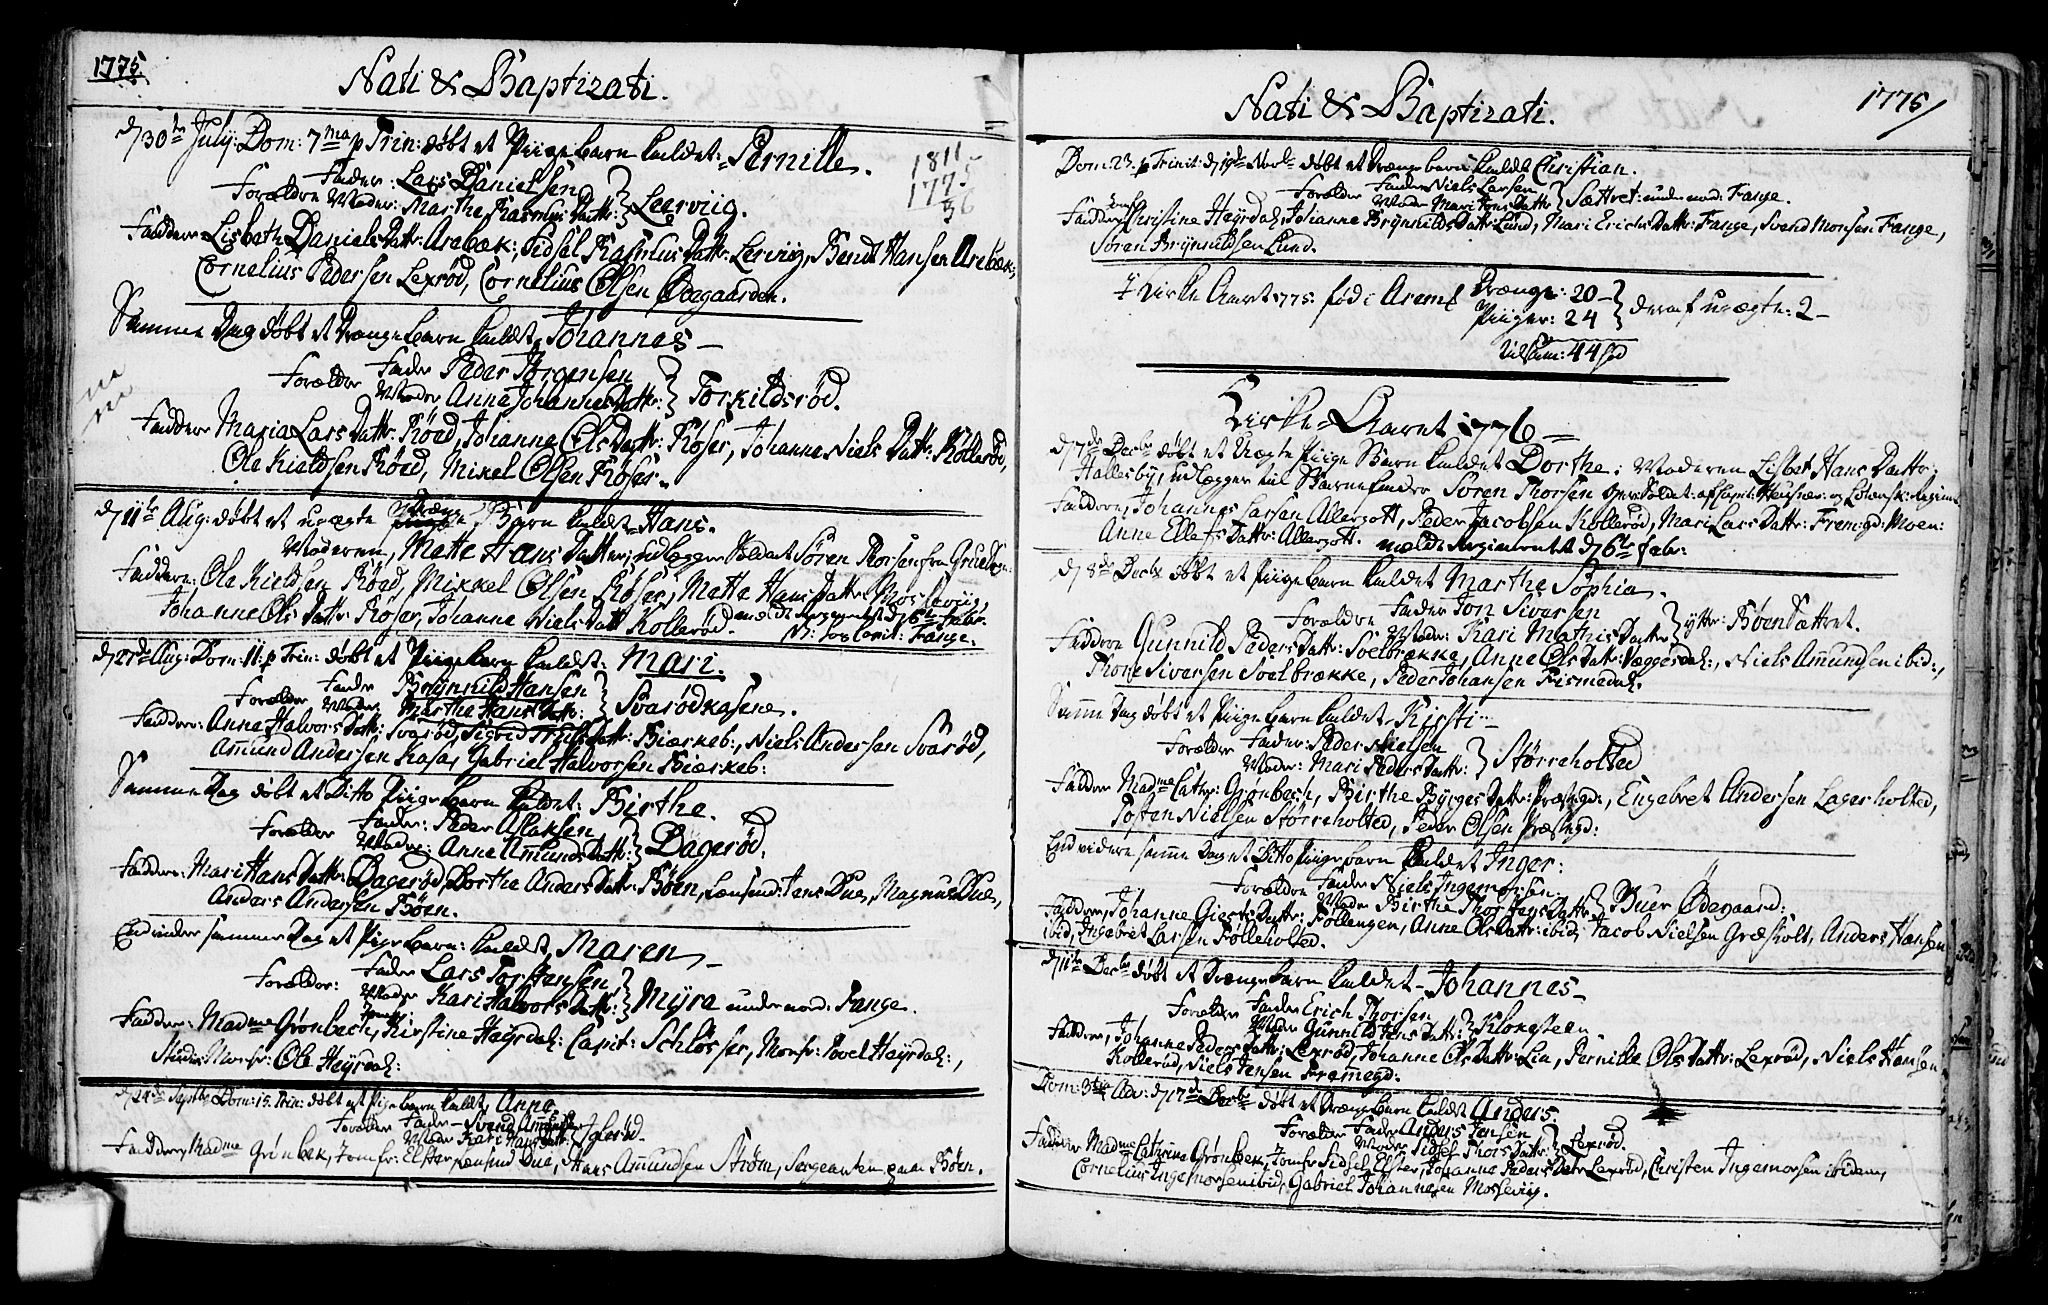 1775.
Nati & Baptizati.
d/30te July: Dom: 7ma p Trin: døbt et Piigebarn kaldet: Pernille.
1811
1775
36
Forældre Fader: Lars Danielsen
Moder: Marthe Rasmus Dattr: } Leerviig.
Faddere Lisbeth Daniels Dattr: Arebæk; Sidsel Rasmus Dattr: Lerviig, Bendt Hansen Arebæk,
Cornelius Pedersen Lexrød, Cornelius Olsen Øvegaarden.
Samme Dag døbt et Drængebarn kaldet Johannes —
Forælder Fader Peder Jørgensen
Moder Anne Johannes Dattr: } Torkildsrød.
Faddere Maria Lars Dattr: Røed, Johanne Ols Dattr: Røser, Johanne Niels Dattr: Kollerød,
Ole Kieldsen Røed, Mikel Olsen Røser.
d/11te Aug: døbt et uægte Dränge Barn kaldet Hans.
Moderen, Mette Hans Datter, udlægger Soldat Søren Thorsen fra
Faddere: Ole Kieldsen Røed, Mikkel Olsen Røser, Mette Hans Dattr: Mosseviig,
Johanne Ols Dattr: Røser, Johanne Niels Dattr Kollerød. meldt Regimentet d/6te Febr:
Fange.
d/27de Aug: Dom: 11: p Trin: døbt et Piigebarn kaldet: Mari.
Forælder Fader Brynnild Hansen
Moder Marthe Hans Dattr: } Svarødkasene.
Faddere: Anne Halvors Dattr: Svarød, Sigrid Dattr: Biærkeb:, Niels Andersen Svarød,
Amund Andersen Kasa, Gabriel Halvorsen Biærkeb:
Samme Dag døbt et Ditto Piigebarn kaldet: Birthe.
Forælder Fader: Peder Aslaksen
Moder: Anne Amunds Dattr: } Bagerød.
Faddere: Mari Hans Dattr: Bagerød, Dorthe Anders Dattr: Bøen, Lænsmd: Jens Due, Magnus Due,
Anders Andersen Bøen.
Endvider samme Dag et Pigebarn: kaldet, Maren —
Forælder: Fader Lars Torstensen
Moder Kari Halvors Dattr: } Myra under nord: Fange.
Faddere: Madme Grønbech, Jomfr: Kirstine Heyrdahl: Capit: Schløsser, Monsr: Povel Heyrdahl:,
Monsr: Ole Heyrdahl:
d/24de Septbr Dom: 15. Trin: døbt et Pigebarn kaldet Anne.
Forælder Fader — Svend Amundsen
Moder Kari Hans Dattr:
Faddere, Madme Grønbek, Jomfr: Elster, Lænsmd Due, Hans Amundsen Strøm, Sergeanten paa Bøen.
Nati & Baptizati.
1775/
Dom: 23. p Trinit: d/19de Novbr døbt et Drængebarn kaldet Christian.
Forælder Fader Niels Larsen
Moder Mari Jens Dattr } Sættret: under nord: Fange.
Faddere Jomfr Christine Heyrdahl, Johanne Brynnilds Dattr: Lund, Mari Erichs Dattr: Fange, Svend Monsen Fange,
Søren Brynnildsen Lund.
I Kirke Aaret 1775. fød i Aremk Drænge: 20 —
Piiger: 24 } deraf uægte: 2 —
tilsam: 44 fød
Kirke-Aaret 1776 —
d/7de Decbr døbt et Uægte Piige Barn kaldet Dorthe; Moderen Lisbet Hans Dattr:
Hallesby, udlægger til Barnefader Søren Thorsen
Faddere, Johannes Larsen Allergott, Peder Jacobsen Kollerød, Mari Lars Dattr: Fremgd: Moen:
Anne Ellefs Dattr: Allergott. meldt Regimentet d/6te Febr:
d/8de Decbr døbt et Piigebarn kaldet Marthe Sophia.
Forældre Fader Jon Siversen
Moder: Kari Mathis Datter } ytter: Bøen Sættret.
Faddere Gunnild Peders Dattr: Soelbrække, Anne Ols Dattr: Væggesdahl:, Niels Amundsen ibid:,
Thore Siversen Soelbrække, Peder Johansen Fismedahl.
Samme Dag døbt et Piigebarn kaldet Kirsti —
Forælder Fader: Peder Nielsen
Moder: Mari Peders Dattr: } Størreholted
Faddere Madme Cathr: Grønbech, Birthe Byrges Dattr: Præstegd:, Engebret Andersen Lagerholted,
Posten Nielsen Størreholted, Peder Olsen Præstegd:
Endvidere samme Dag et Ditto Piigebarn kaldet Inger:
Forældre Fader Niels Ingemorsen
Moder Birthe Thorstens Dattr } Buer Ødegaard:
Faddere, Johanne Gierts Dattr: Føllengen, Anne Ols Dattr: ibid, Jacob Nielsen Græsholt, Anders Hansen
ibid, Ingebret Larsen Fölleholted.
d/11te Decbr døbt et Drængebarn kaldet — Johannes —
Forælder Fader Erich Thorsen
Moder Gunnil Jens Dattr: } Klokesteen
Faddere, Johanne Peders Dattr: Lexrød, Johanne Ols Dattr: Lin, Pernille Ols Dattr: Lexrød, Niels Hansen
Kollerød, Niels Jensen Framegd:
Dom: 3tia Adv: d/17de Decbr døbt et Drængebarn kaldet Anders.
Forælder Fader Anders Jensen
Moder Sidsel Thors Dattr: } Lexrød.
Faddere Madme Cathrina Grønbek, Jomfr Sidsel Elster, Johanne Peders Dattr Lexrød, Christen Ingemorsen ibidem,
Cornelius Ingemorsen ibid, Gabriel Johannesen Mosseviig.